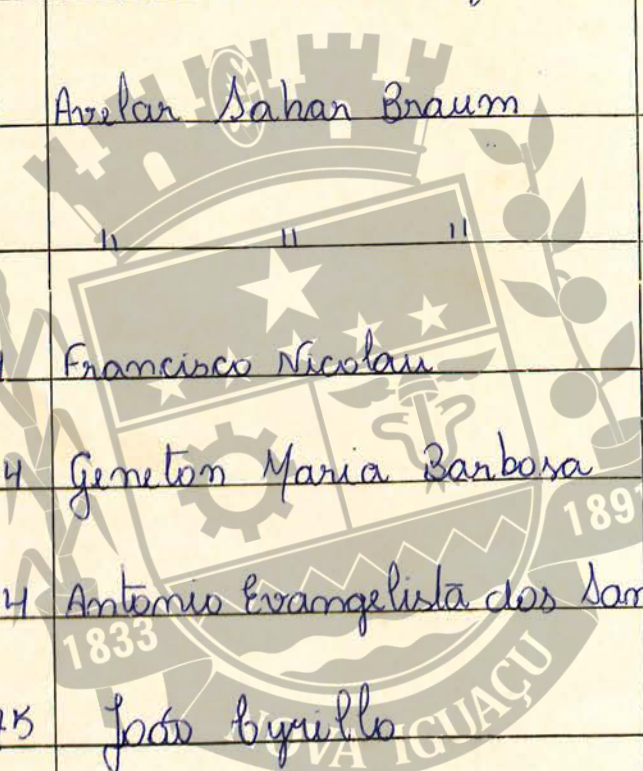 Avelar Sahan Braum
" " "
Francisco Nicolau
4 Geneton Maria Barbosa
4 Antonio Evangelista dos San
25 João Cyrillo
1833
189
NOVA IGUAÇU